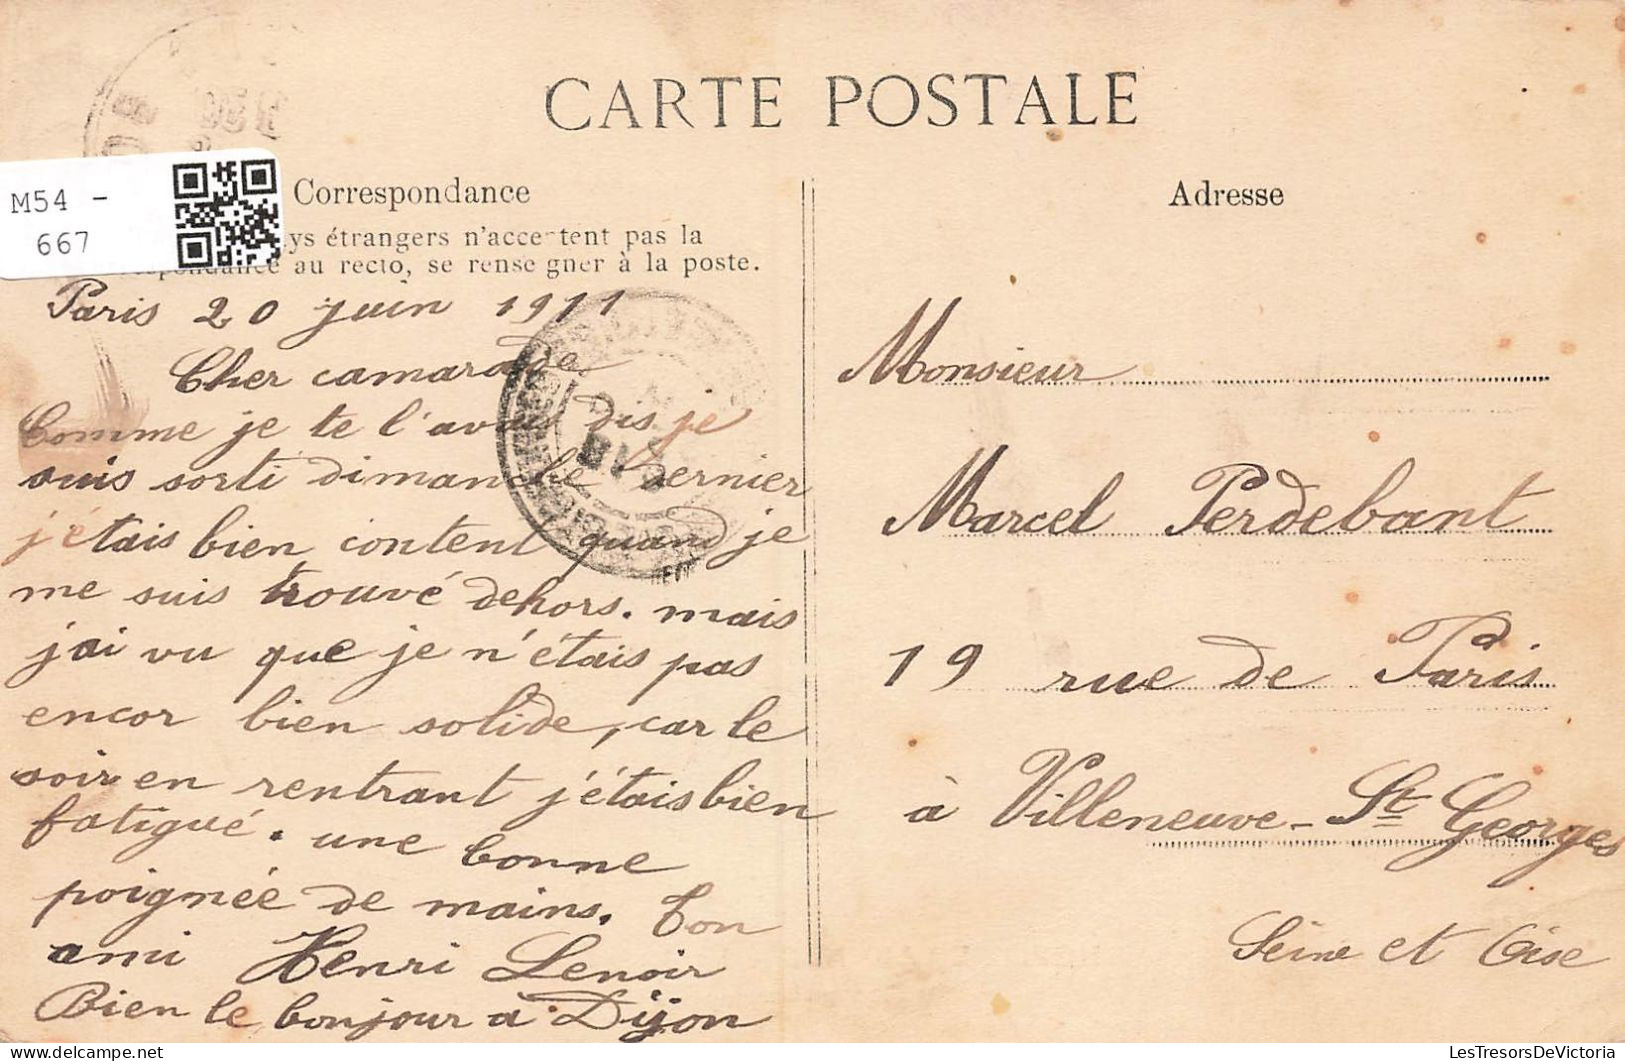 CARTE POSTALE
M54 -
667
Correspondance
ys étrangers n'acceptent pas la
au recto, se renseigner à la poste.
Paris 20 juin 1911
Cher camarade
Comme je te l'avais dis je
suis sorti dimanche dernier
j'étais bien content quand je
me suis trouvé dehors. mais
j'ai vu que je n'étais pas
encor bien solide, car le
soir en rentrant j'étais bien
fatigué. une bonne
poignée de mains. Ton
ami Henri Lenoir
Bien le bonjour a Dijon
Adresse
Monsieur
Marcel Perdebant
19 rue de Paris
à Villeneuve-St Georges
Seine et Oise
LesTresorsDeVictoria.com